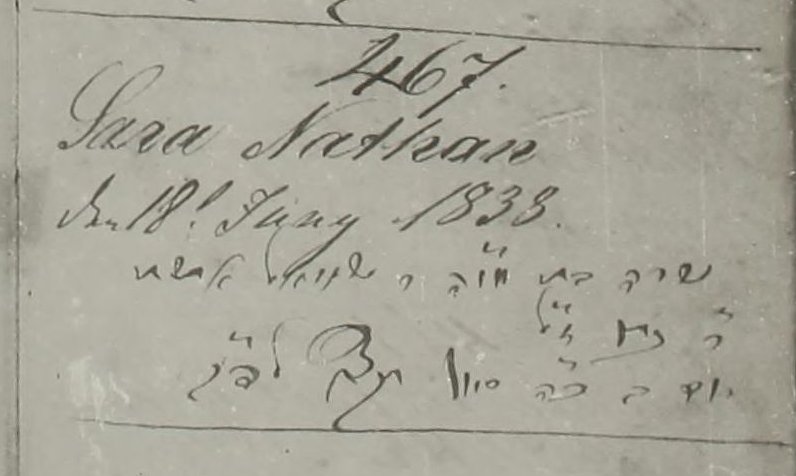 467.
Sara Nathan
den 18t Juny 1838.
שרה בת מו"ה ר שמואל אשת
ר' נתן ז"ל
יום ב כ"ה סיון תקצח לפ"ק